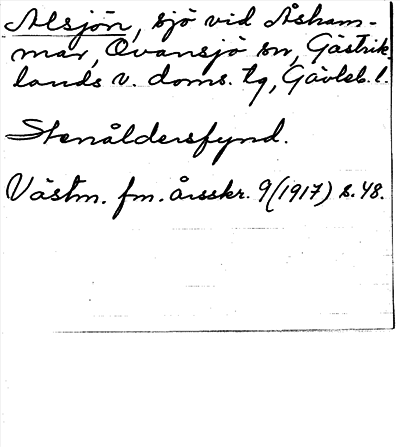 Alsjön, sjö vid Åsham-
mar, Ovansjö sn, Gästrik-
lands v. doms. tg, Gävleb. l.
Stenåldersfynd.
Västm. fm. årsskr. 9 (1917) s. 48.